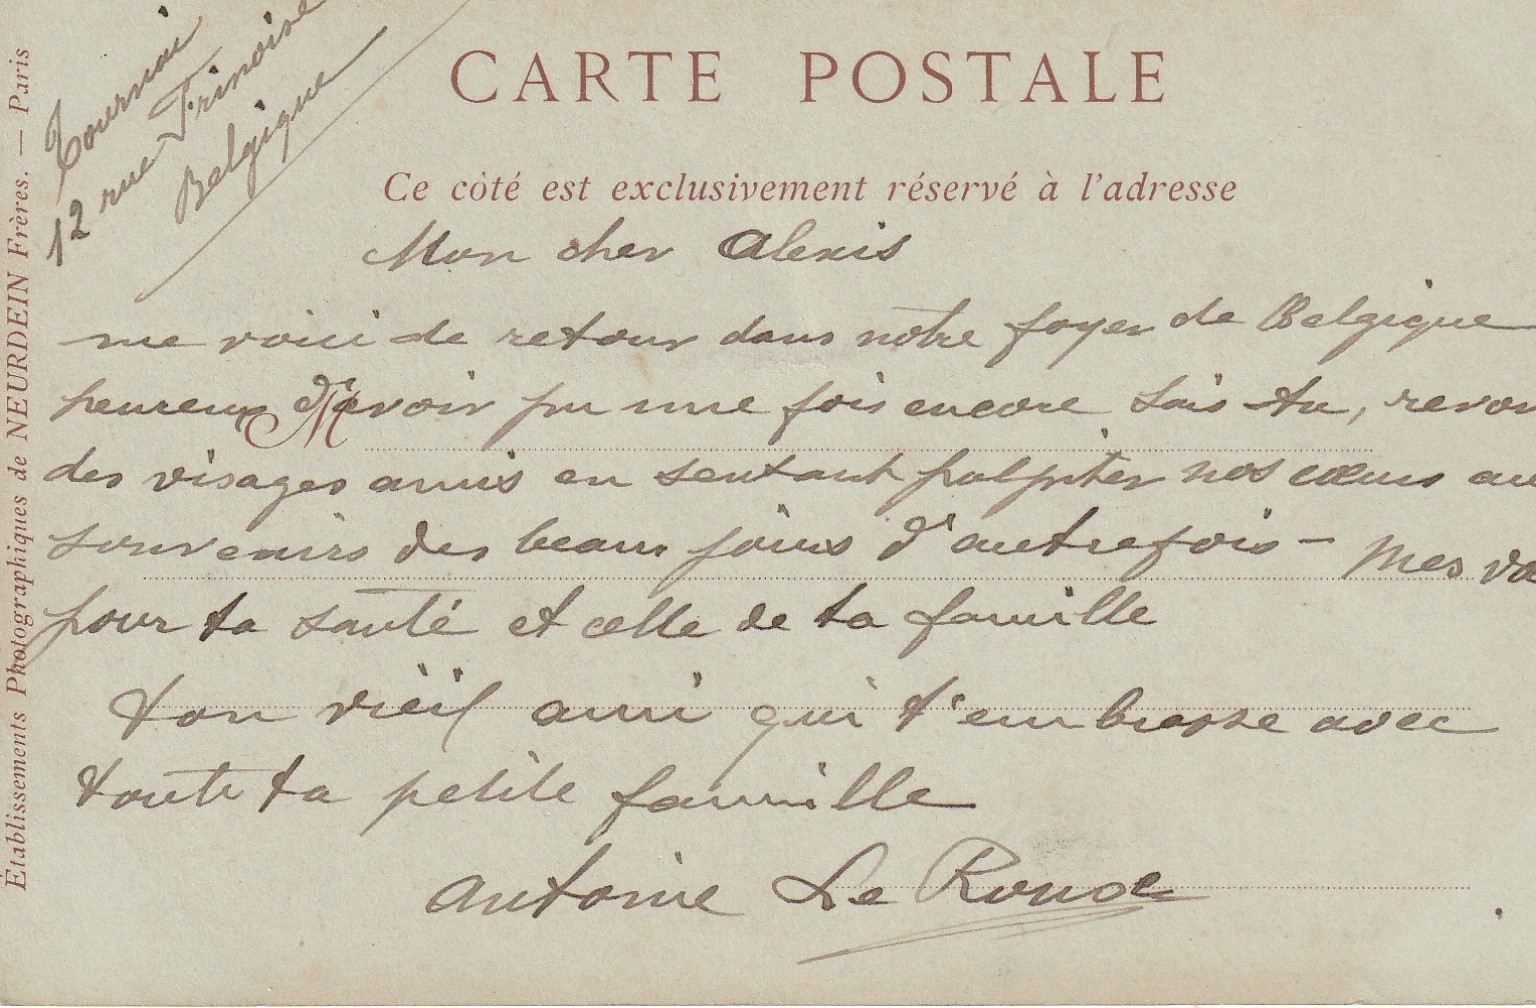 Tournai
12 rue Frinoise
Belgique
CARTE POSTALE
Ce côté est exclusivement réservé à l'adresse
Mon cher Alexis
me voici de retour dans notre foyer de Belgique
heureux d'avoir pu une fois encore sais tu, revoir
M
des visages amis en sentant palpiter nos cœurs au
souvenirs des beaux jours d'autrefois - Mes
pour ta santé et celle de ta famille
ton vieil ami qui t'embrasse avec
toute ta petite famille
Antoine Le
Établissements Photographiques de NEURDEIN Frères. — Paris